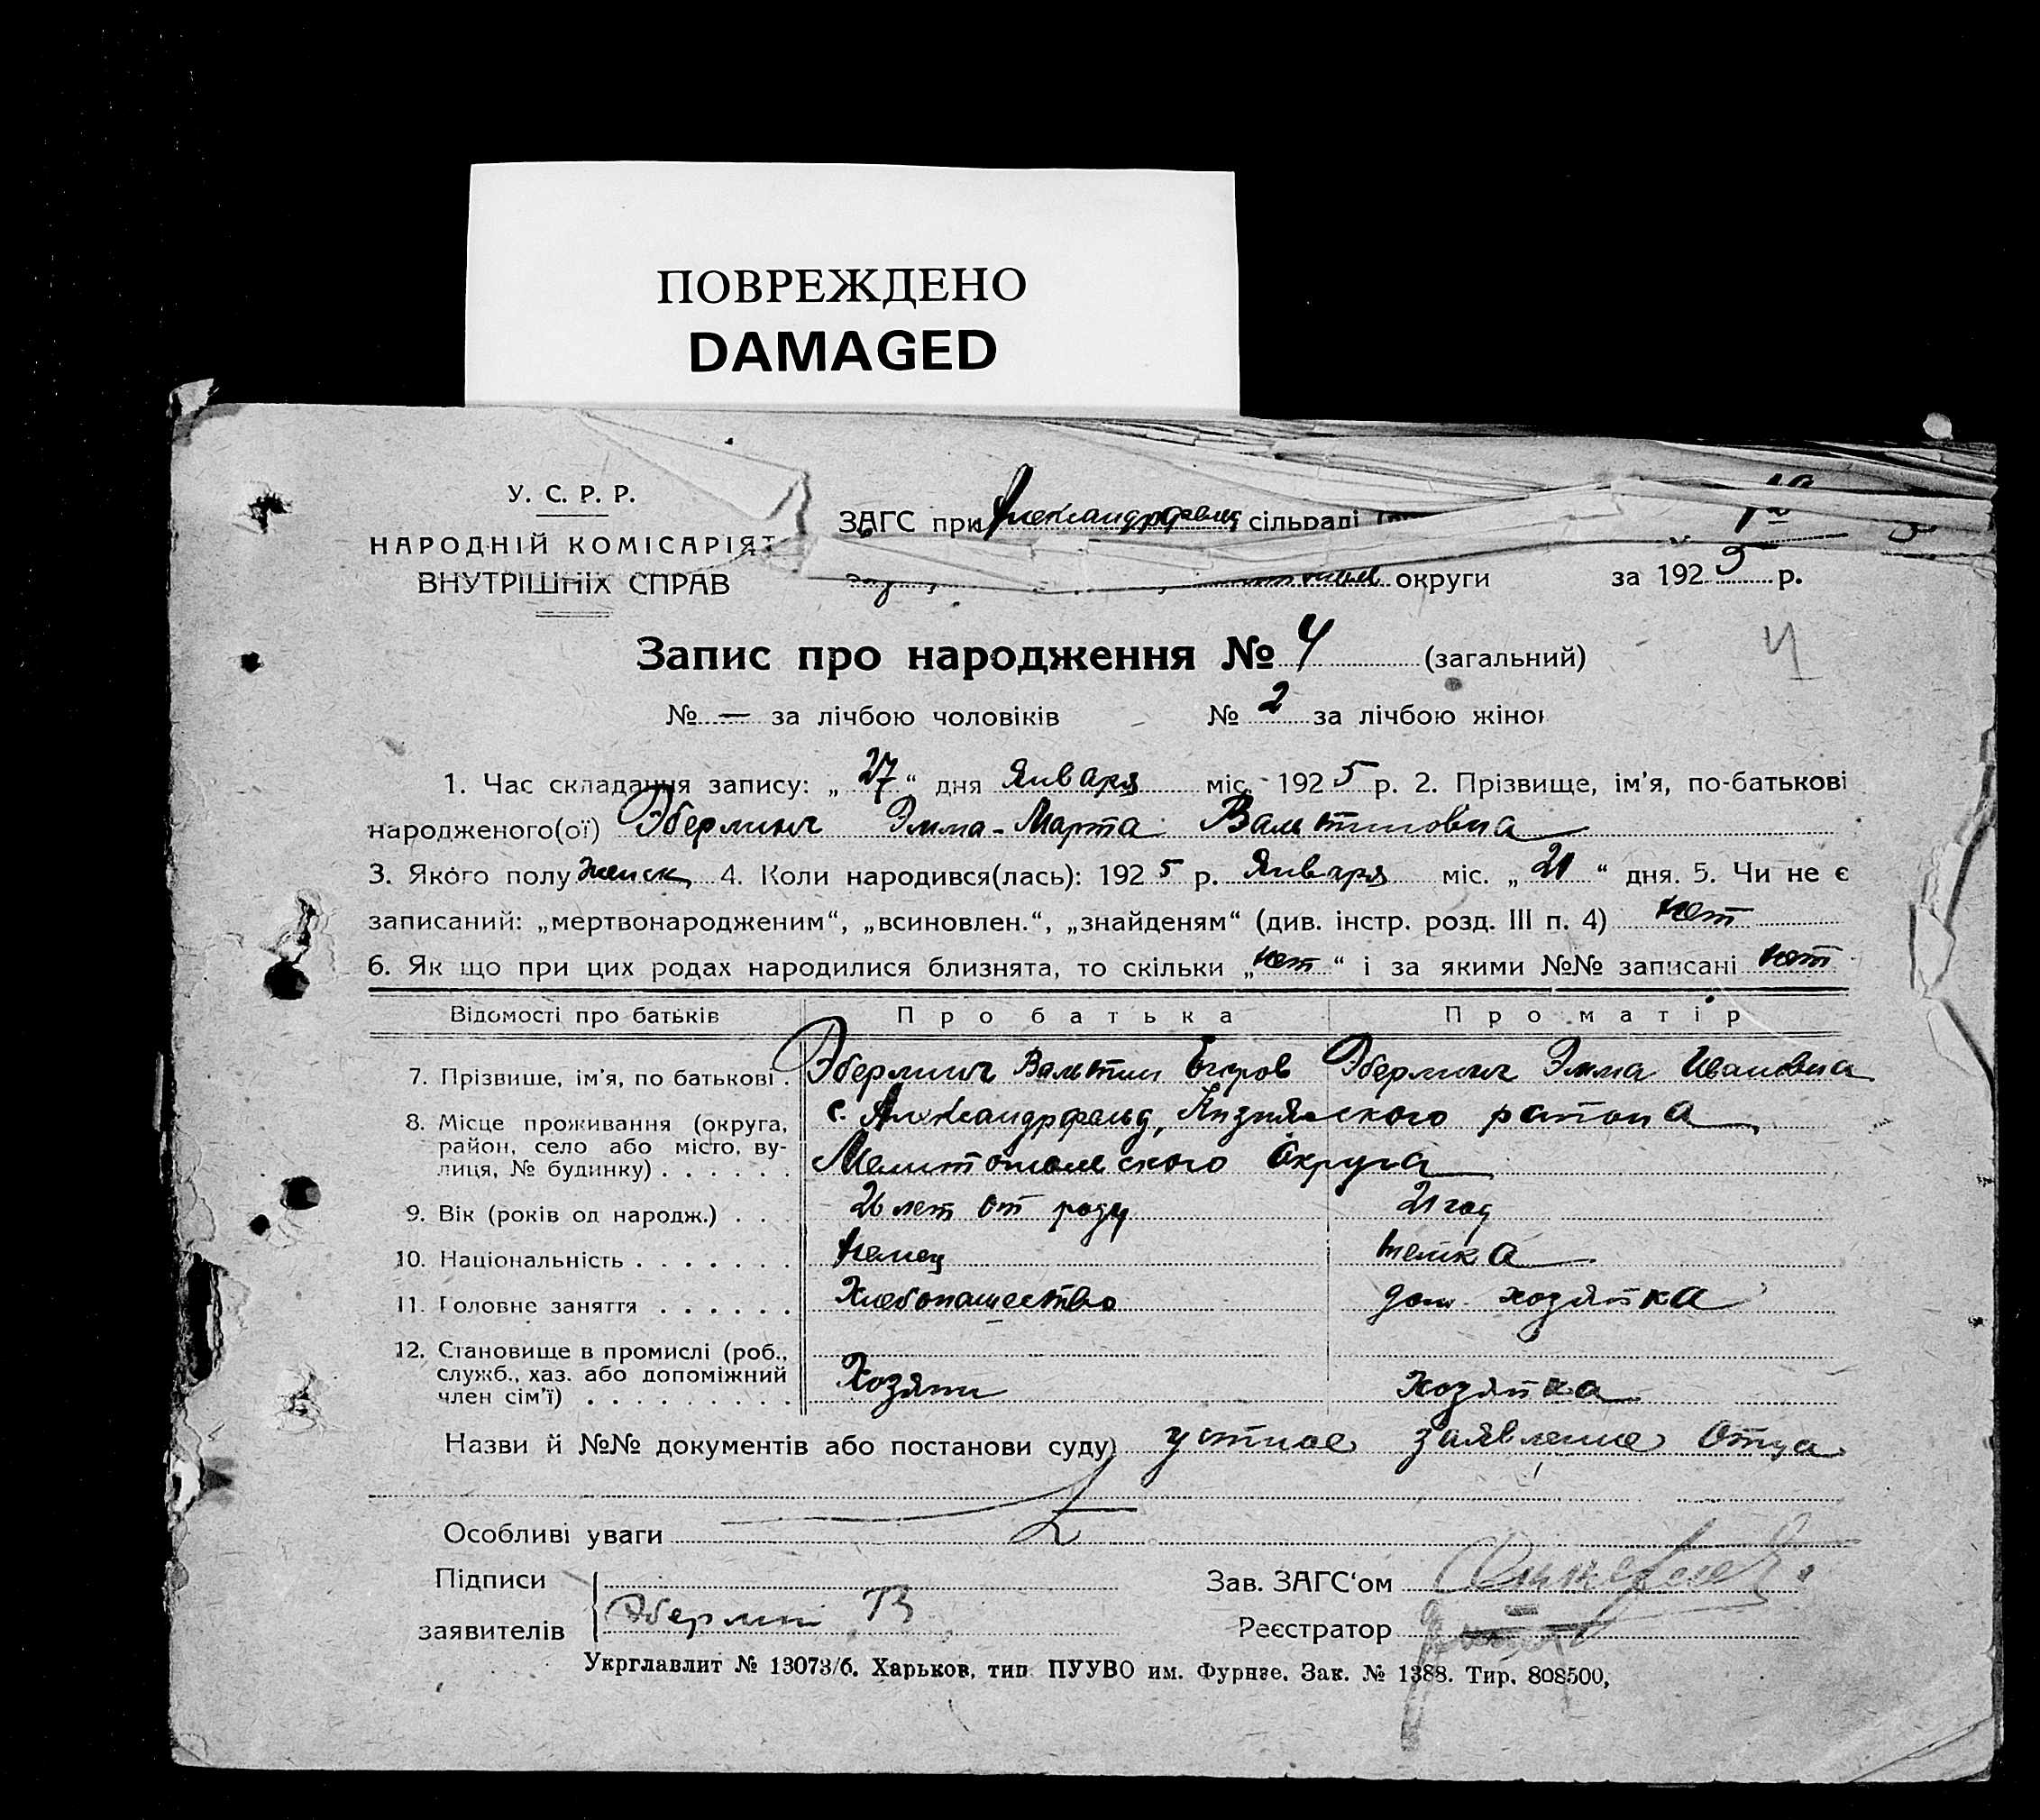 ПОВРЕЖДЕНО
DAMAGED
У. С. Р. Р.
НАРОДНІЙ КОМІСАРІЯТ
ВНУТРІШНІХ СПРАВ
ЗАГС при Александрфельд сільраді
округи за 1925 р.
Запис про народження № 4 (загальний)
4
№ — за лічбою чоловіків № 2 за лічбою жінок
1. Час складання запису: „27“ дня Января міс. 1925 р. 2. Прізвище, ім’я, по-батькові
народженого(ої) Эберлинг Эмма-Марта Вальтиновна
3. Якого полу женск 4. Коли народився(лась): 1925 р. Января міс. „21“ дня. 5. Чи не є
записаний: „мертвонародженим“, „всиновлен.“, „знайденям“ (див. інстр. розд. III п. 4) нет
6. Як що при цих родах народилися близнята, то скільки „нет“ і за якими №№ записані нет
Відомості про батьків Про батька Про матір
7. Прізвише, ім’я, по батькові . Эберлинг Вальтин Егоров Эберлинг Эмма Ивановна
8. Місце проживання (округа, район, село або місто, ву- лиця, № будинку) . . . . . . с. Александрфельд, района
Мелитопольского Округа
9. Вік (років од народж.) . . . 26 лет от роду 21 год
10. Національність . . . . . . . Немец немка
11. Головне заняття . . . . . . Хлебопашество дом. хозяйка
12. Становище в промислі (роб.,
служб., хаз. або допоміжний
член сім’ї) . . . . . . . . . Хозяин Хозяйка
Назви й №№ документів або постанови суду) устное заявление отца
Особливі уваги
Підписи
заявителів Эберлинг В
Зав. ЗАГС‘ом
Реєстратор
Укрглавлит № 13073/6. Харьков, тип. ПУУВО им. Фурнзе. Зак. № 1388. Тир. 808500,